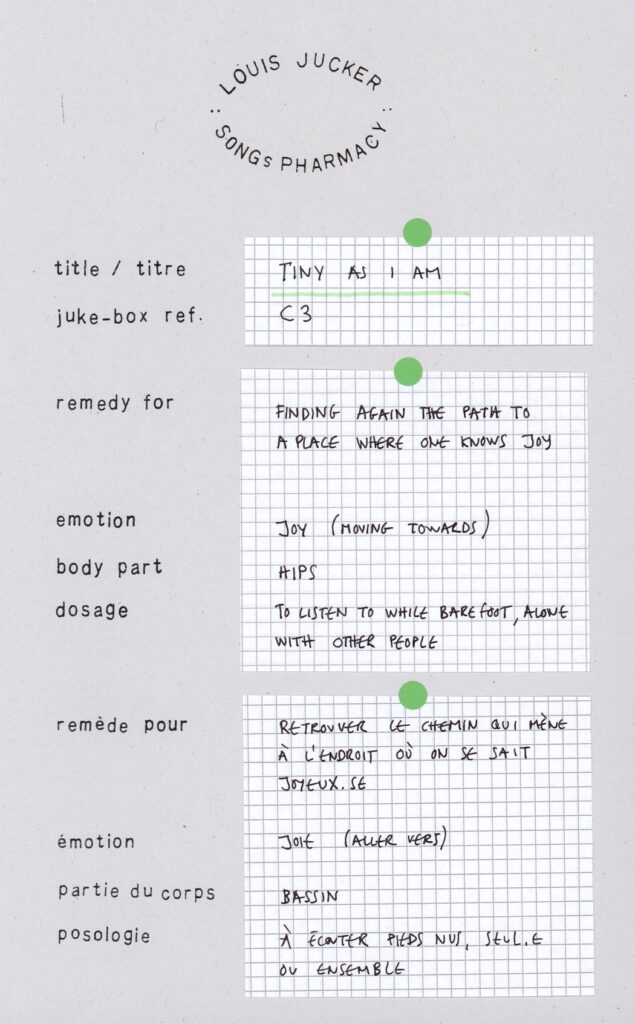 : LOUIS JUCKER :
SONGs PHARMACY
title / titre TINY AS I AM
juke-box ref. C3
remedy for FINDING AGAIN THE PATH TO
A PLACE WHERE ONE KNOWS JOY
emotion JOY (MOVING TOWARDS)
body part HIPS
dosage TO LISTEN TO WHILE BAREFOOT, ALONE
WITH OTHER PEOPLE
remède pour RETROUVER LE CHEMIN QUI MÈNE
À L'ENDROIT OÙ ON SE SAIT
JOYEUX.SE
émotion JOIE (ALLER VERS)
partie du corps BASSIN
posologie À ÉCOUTER PIEDS NUS, SEUL.E
OU ENSEMBLE